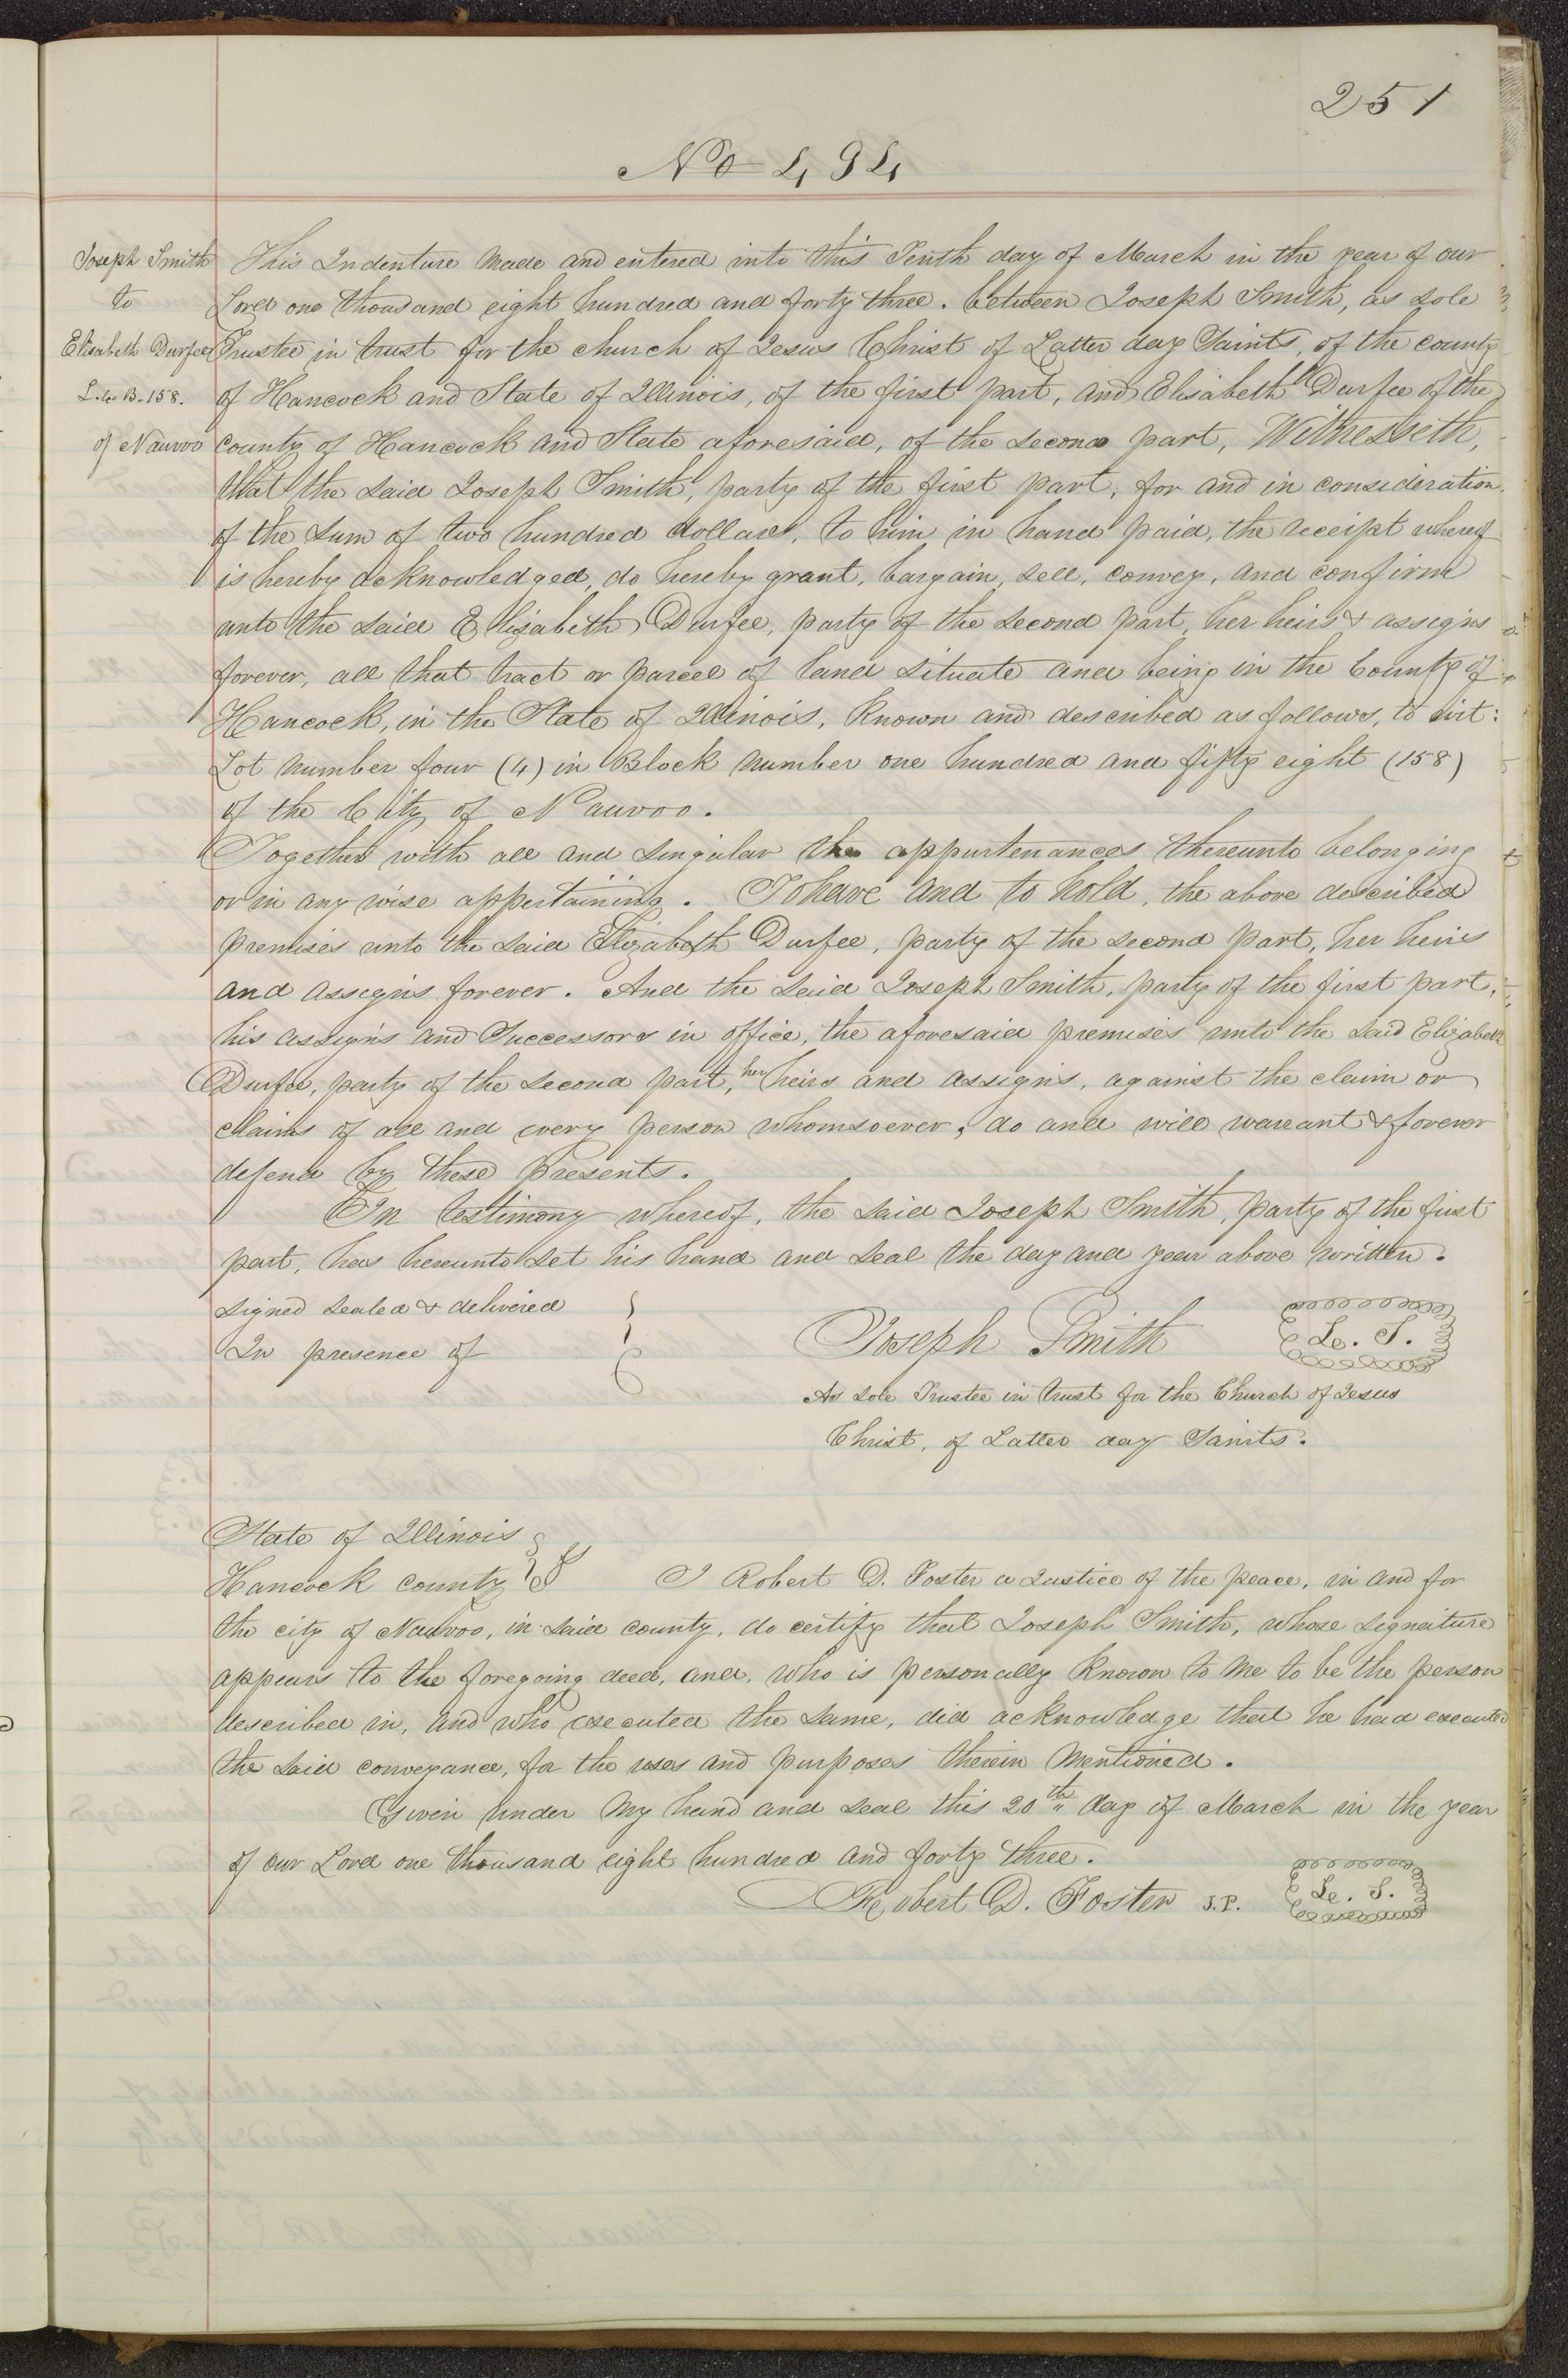 251
No 494
Joseph Smith
to
Elisabeth Durfee
L. 4. B. 158.
of Nauvoo
This Indenture made and entered into this Tenth day of March in the year of our
Lord one thousand eight hundred and forty three. between Joseph Smith, as sole
Trustee in trust for the church of Jesus Christ of Latter day Saints, of the county
of Hancock and State of Illinois, of the first part, and Elisabeth Durfee of the
county of Hancock and State aforesaid, of the second part, Witnesseth,
that the said Joseph Smith, party of the first part, for and in consideration
of the sum of two hundred dollars, to him in hand paid, the receipt whereof
is hereby acknowledged, do hereby grant, bargain, sell, convey, and confirm
unto the said Elizabeth Durfee, party of the second part, her heirs & assigns
forever, all that tract or parcel of land situate and being in the County of
Hancock, in the State of Illinois, known and described as follows, to wit:
Lot number four (4) in Block number one hundred and fifty eight (158)
of the City of Nauvoo.
Together with all and singular the appurtenances thereunto belonging
or in any wise appertaining. To have and to hold, the above described
premises unto the said Elizabeth Durfee, party of the second part, her heirs
and assigns forever. And the said Joseph Smith, party of the first part,
his assigns and Successors in office, the aforesaid premises unto the said Elizabeth
Durfee, party of the second part, her heirs and assigns, against the claim or
claims of all and every person whomsoever, do and will warrant & forever
defend by these presents.
In testimony whereof, the said Joseph Smith, party of the first
part, has hereunto set his hand and seal the day and year above written.
signed sealed & delivered
In presence of
Joseph Smith L. S.
As sole Trustee in trust for the Church of Jesus
Christ, of Latter day Saints.
State of Illinois
Hancock county ss I Robert D. Foster a Justice of the peace, in and for
the city of Nauvoo, in said county, do certify that Joseph Smith, whose signature
appears to the foregoing deed, and, who is personally known to me to be the person
described in, and who executed the same, did acknowledge that he had executed
the said conveyance, for the uses and purposes therein mentioned.
Given under my hand and seal this 20th day of March in the year
of our Lord one thousand eight hundred and forty three.
Robert D. Foster J.P. L. S.